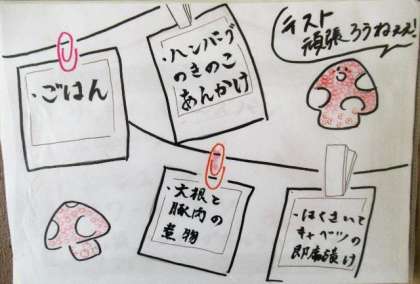 ・ごはん
・ハンバーグ
のきのこ
あんかけ
テスト
頑張ろうねェ!
・大根と
豚肉の
煮物
・はくさいと
キャベツの
即席漬け